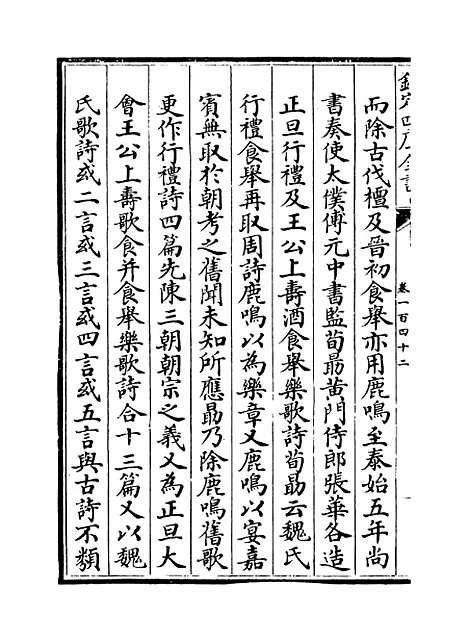 欽定四庫全書
卷一百四十二
而除古伐檀及晉初食舉亦用鹿鳴至泰始五年尚
書奏使太僕傅元中書監荀勗黄門侍郎張華各造
正旦行禮及王公上壽酒食舉樂歌詩荀勗云魏氏
行禮食舉再取周詩鹿鳴以為樂章又鹿鳴以宴嘉
賓無取於朝考之舊聞未知所應勗乃除鹿鳴舊歌
更作行禮詩四篇先陳三朝朝宗之義又為正旦大
會王公上壽歌食并食舉樂歌詩合十三篇又以魏
氏歌詩或二言或三言或四言或五言與古詩不類